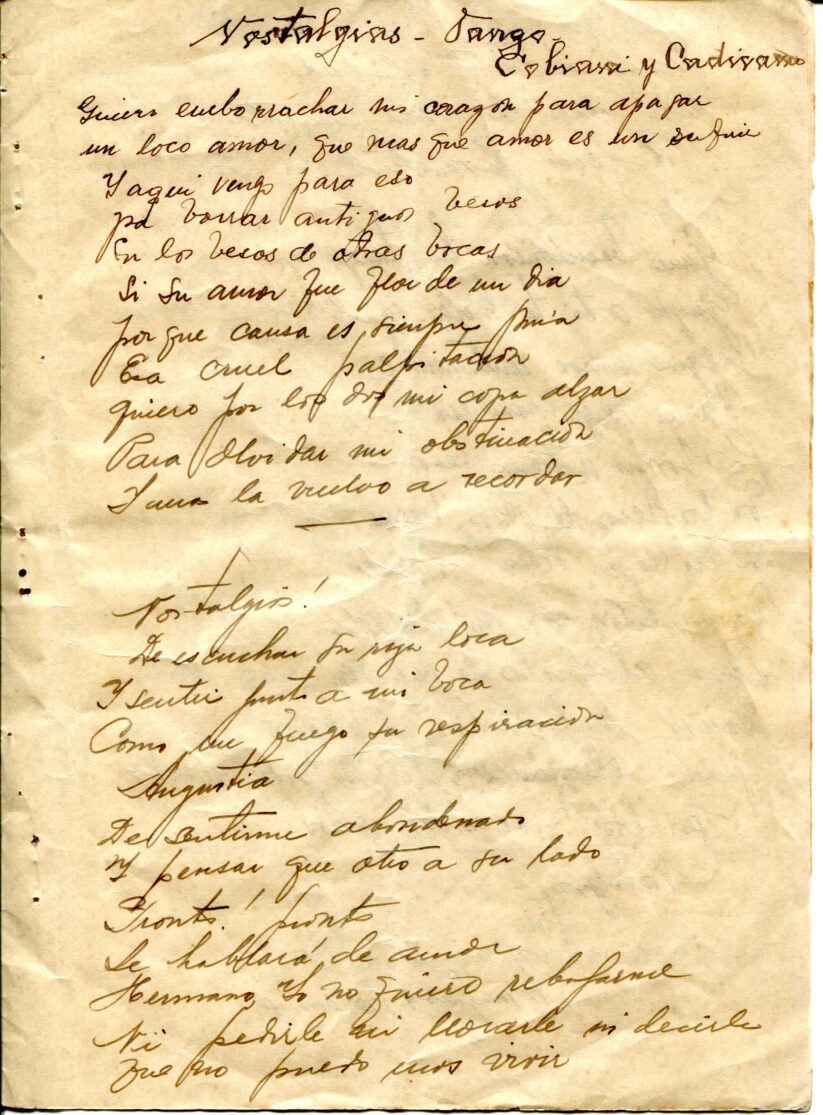 Nostalgias - Tango -
Cobian y Cadicamo
Quiero emborrachar mi corazon para apagar
un loco amor, que mas que amor es un sufrir
Y aqui vengo para eso
pa borrar antiguos besos
En los besos de otras bocas
Si su amor fue flor de un dia
porque causa es siempre mia
Esa cruel palpitacion
quiero por los dos mi copa alzar
Para olvidar mi obstinacion
Y mas la vuelvo a recordar
Nostalgias!
De escuchar su risa loca
Y sentir junto a mi boca
Como un fuego su respiracion
Angustia
De sentirme abandonado
Y pensar que otro a su lado
Pronto! pronto
Le hablará de amor
Hermano, Yo no quiero rebajarme
Ni pedirle ni llorarle ni decirle
que no puedo mas vivir